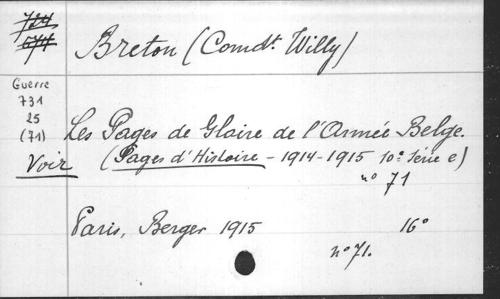 724
674
Breton (Comdt. Willy)
Guerre
731
25
(71)
Les Pages de Gloire de l'Armée Belge.
Voir (Pages d'Histoire - 1914-1915 10e Série e)
no 71
Paris, Berger 1915 16o
no 71.